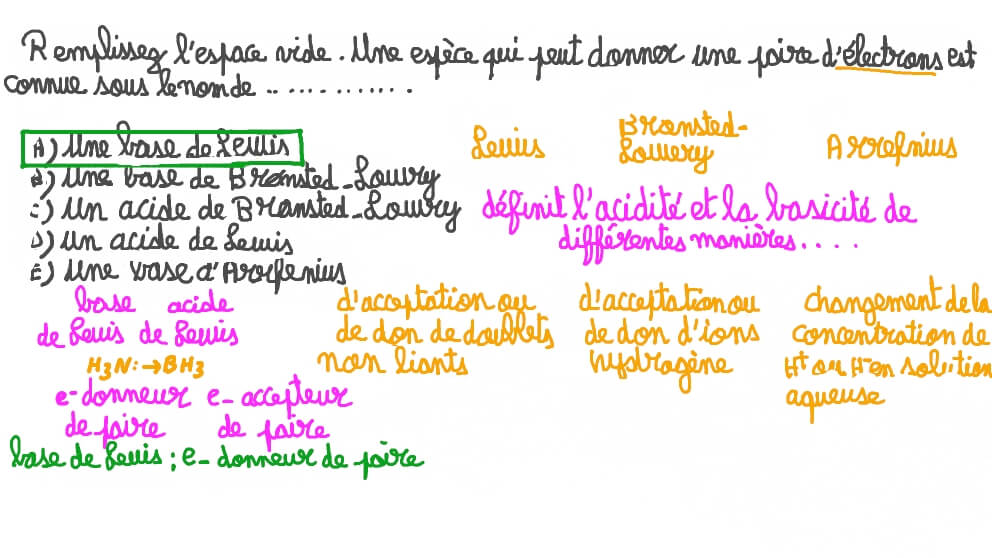 Remplissez l'espace vide. Une espèce qui peut donner une paire d'électrons est
connue sous le nom de .............
A) Une base de Lewis
B) Une base de Brønsted-Lowry
C) Un acide de Brønsted-Lowry
D) Un acide de Lewis
E) Une base d'Arrhenius
Lewis
Brønsted-
Lowery
Arrhenius
définit l'acidité et la basicité de
différentes manières....
base acide
de Lewis de Lewis
H3N: → BH3
e- donneur e- accepteur
de paire de paire
d'acceptation ou
de don de doublets
non liants
d'acceptation ou
de don d'ions
hydrogène
changement de la
concentration de
H+ ou H- en solution
aqueuse
base de Lewis ; e- donneur de paire